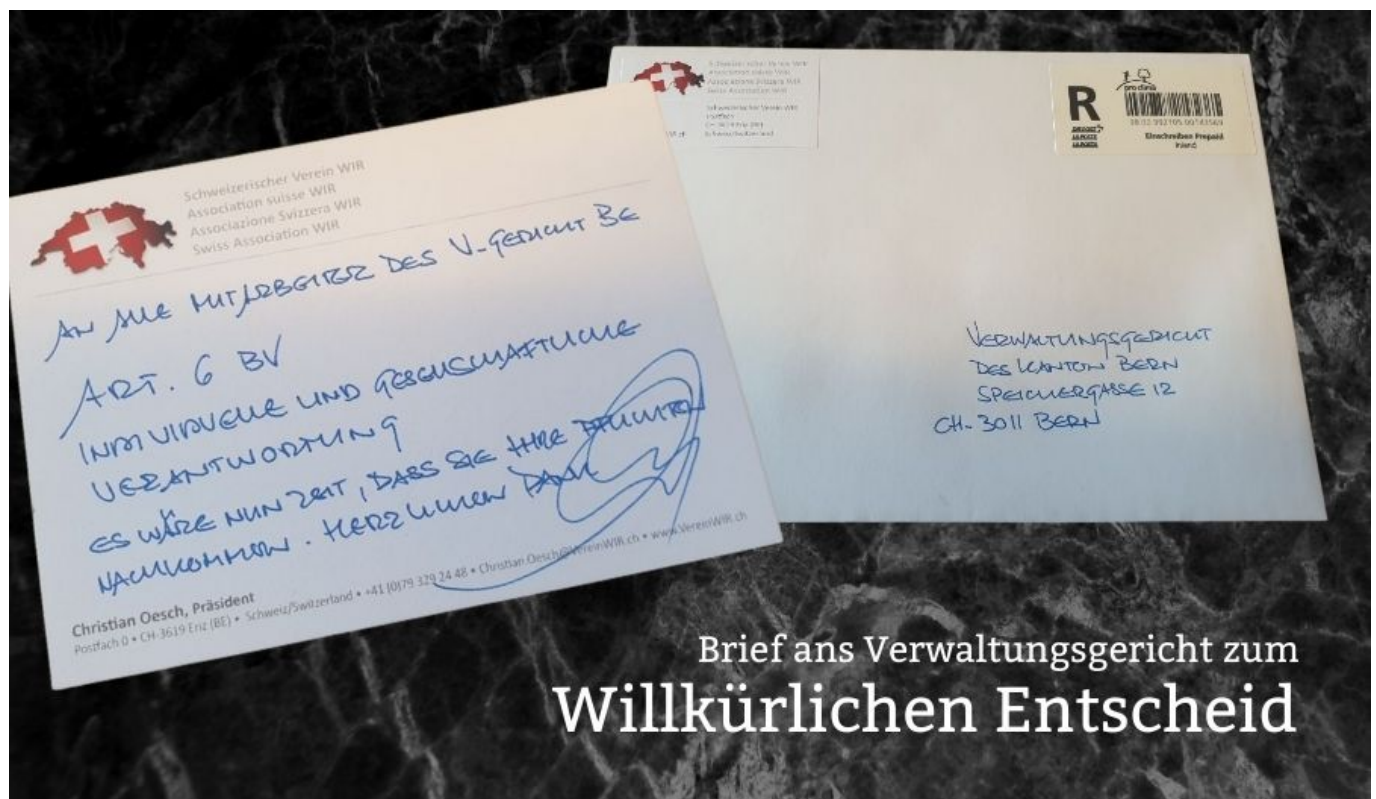 Schweizerischer Verein WIR
Association suisse WIR
Associazione Svizzera WIR
Swiss Association WIR
AN ALLE MITARBEITER DES V-GERICHT BE
ART. 6 BV
INDIVIDUELLE UND GESELLSCHAFTLICHE
VERANTWORTUNG
ES WÄRE NUN ZEIT, DASS SIE IHRE PFLICHTEN
NACHKOMMEN. HERZLICHEN DANK
Christian Oesch, Präsident
Postfach 0 • CH-3619 Eriz (BE) • Schweiz/Switzerland • +41 (0)79 329 24 48 • Christian.Oesch@VereinWIR.ch • www.VereinWIR.ch
Schweizerischer Verein WIR
Association suisse WIR
Associazione Svizzera WIR
Swiss Association WIR
Schweizerischer Verein WIR
Postfach
CH-3619 Eriz (BE)
Schweiz/Switzerland
pro clima
R
DIE POST
LA POSTE
LA POSTA
Einschreiben Prepaid
Inland
VERWALTUNGSGERICHT
DES KANTON BERN
SPEICHERGASSE 12
CH-3011 BERN
Brief ans Verwaltungsgericht zum
Willkürlichen Entscheid